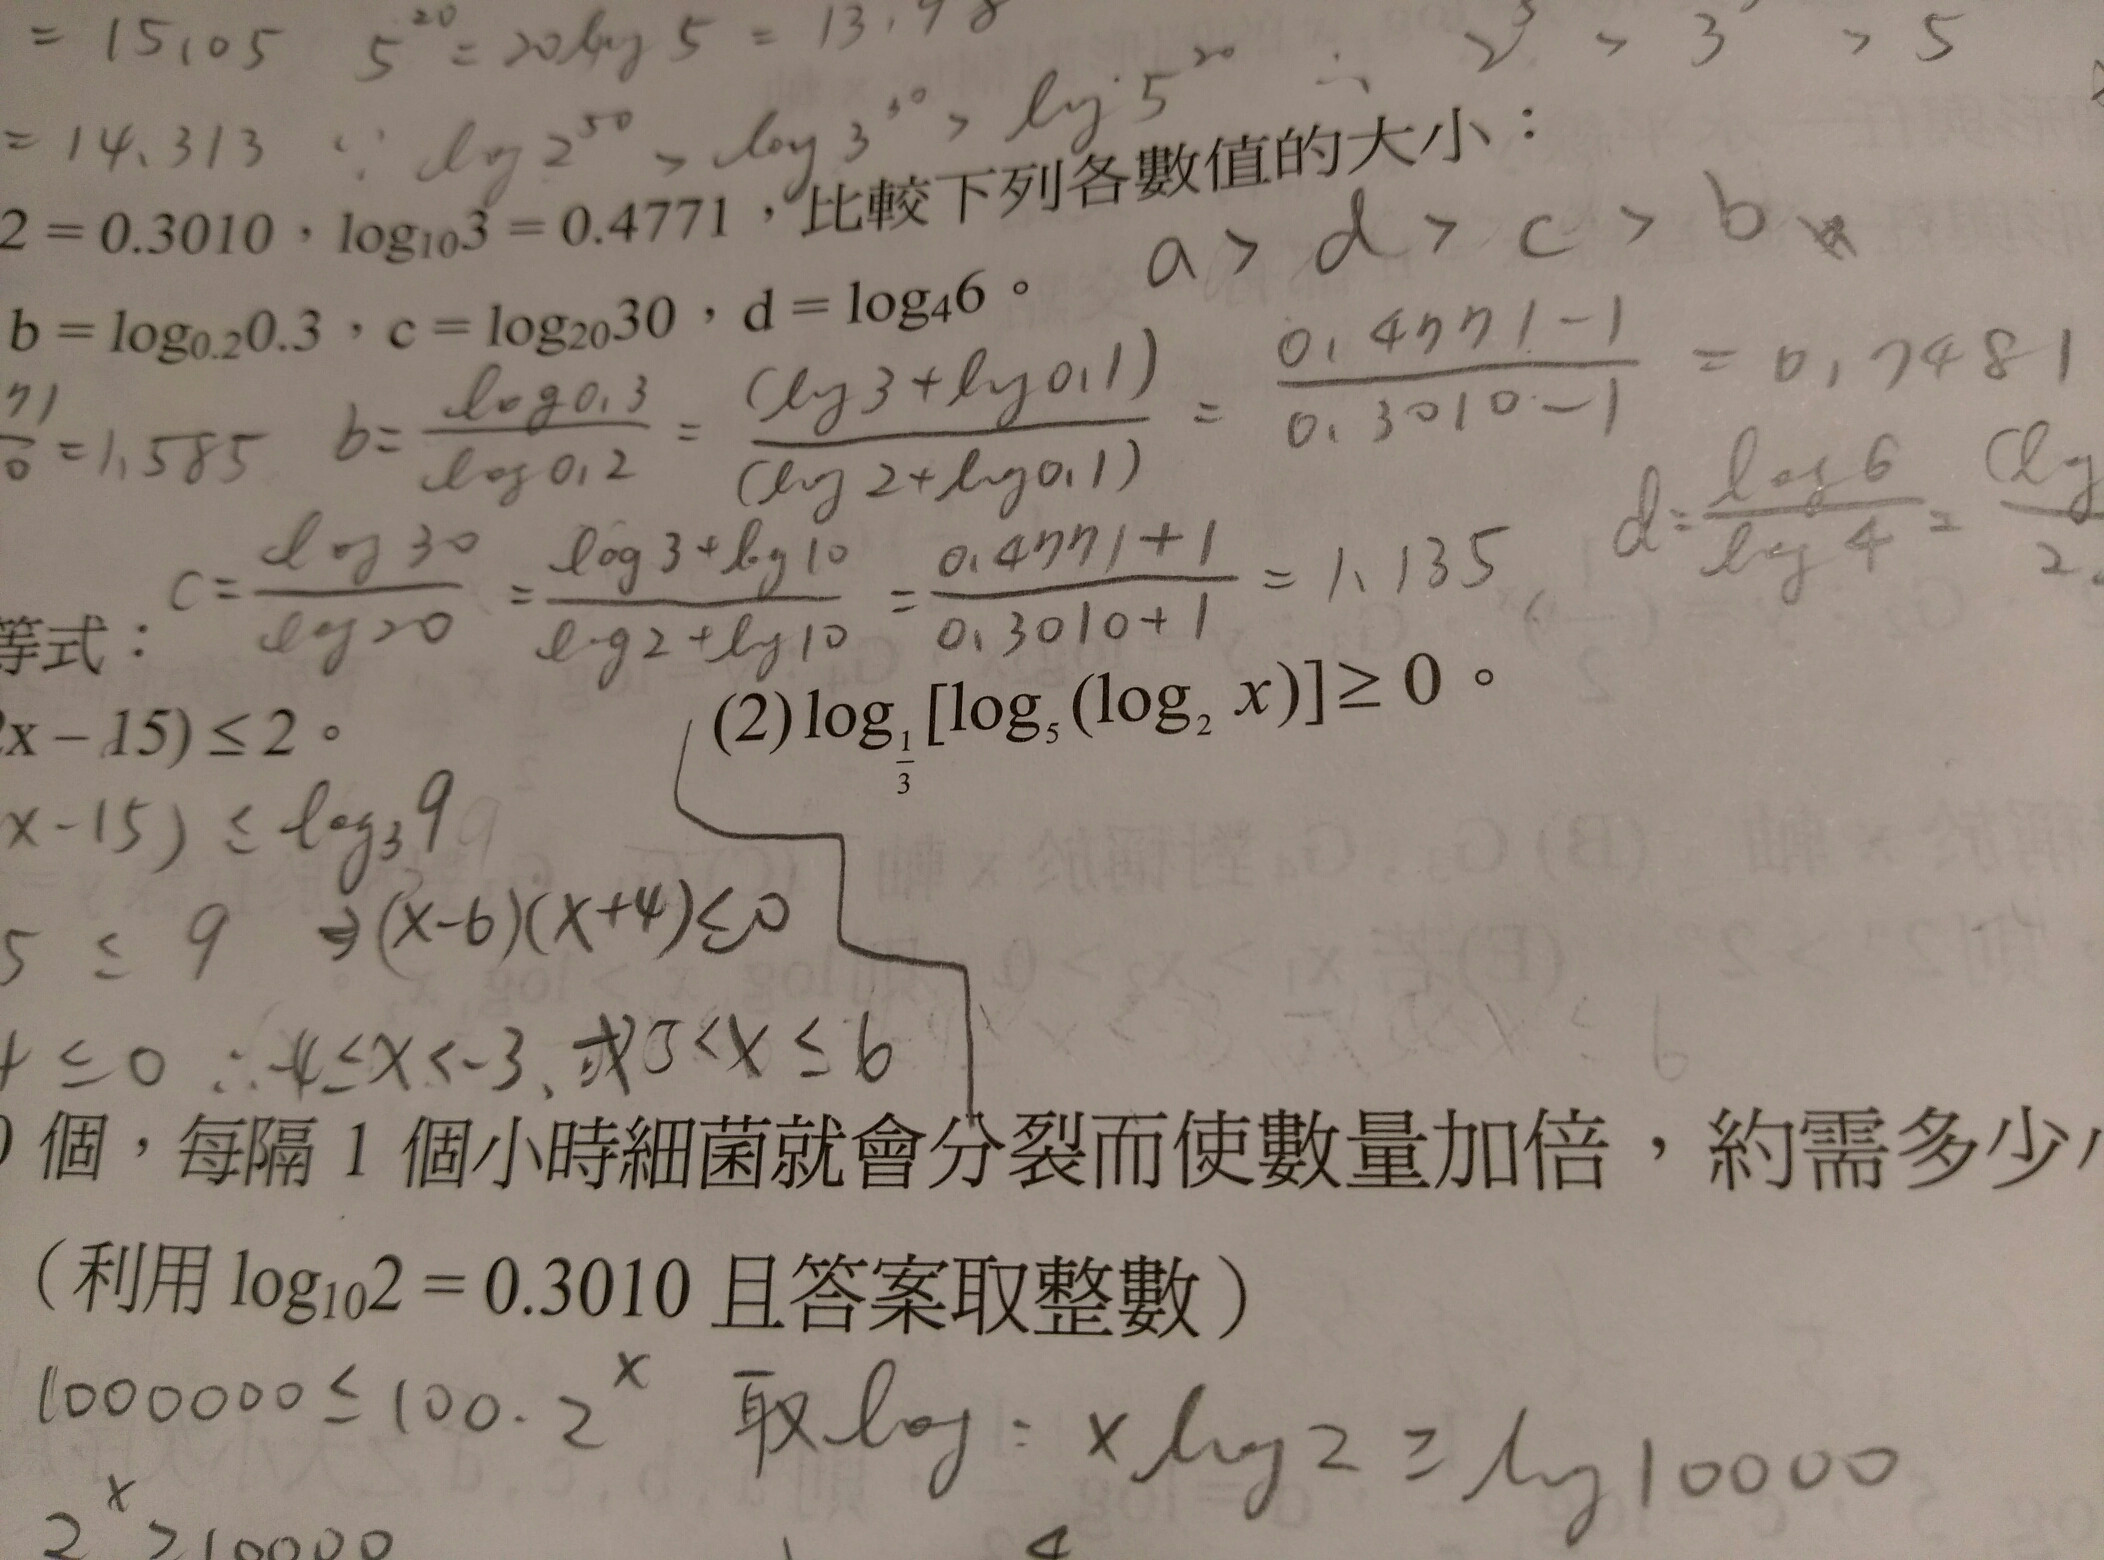 = 15.05 5^20 = 20log5 = 13.98
= 14.313 ∵ log2^50 > log3^30 > log5^20 ∴ 2 > 3 > 5
2 = 0.3010，log₁₀3 = 0.4771，比較下列各數值的大小：
a > d > c > b
b = log₀.₂0.3，c = log₂₀30，d = log₄6。
= 1.585 b = log0.3/log0.2 = (log3+log0.1)/(log2+log0.1) = (0.4771-1)/(0.3010-1) = 0.7481
c = log30/log20 = (log3+log10)/(log2+log10) = (0.4771+1)/(0.3010+1) = 1.135 d = log6/log4 =
等式：
x – 15) ≤ 2。 (2) log_{1/3}[log₅(log₂ x)] ≥ 0。
x-15) ≤ log₃9
5 ≤ 9 ⇒ (x-6)(x+4) ≤ 0
≤ 0 ∴ -4 ≤ x < -3、或 5 < x ≤ 6
個，每隔 1 個小時細菌就會分裂而使數量加倍，約需多少
（利用 log₁₀2 = 0.3010 且答案取整數）
1000000 ≤ 100·2^x 取log： x log2 ≥ log10000
2^x ≥ 10000 4